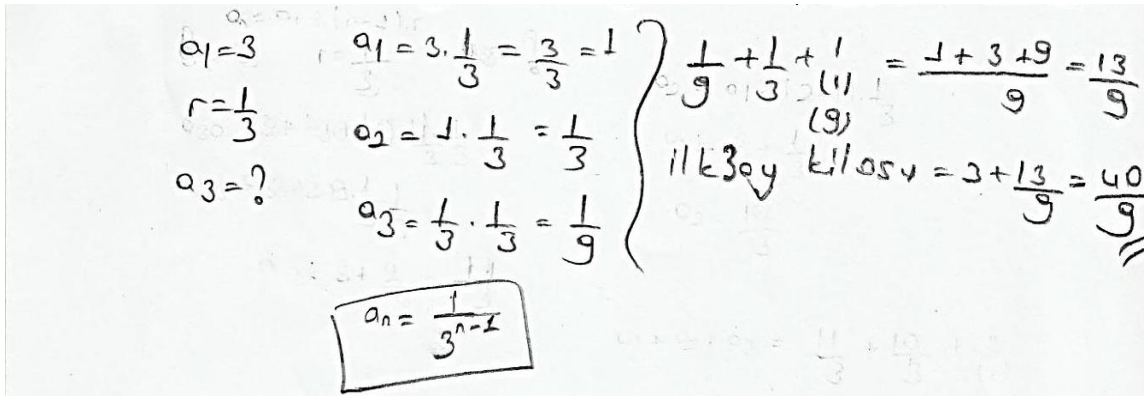 a1 = 3
r = 1/3
a3 = ?
a1 = 3 · 1/3 = 3/3 = 1
a2 = 1 · 1/3 = 1/3
a3 = 1/3 · 1/3 = 1/9
an = 1/3^(n-1)
1/9 + 1/3 + 1 = (1 + 3 + 9)/9 = 13/9
(1)
(9)
ilk 3 ay kilosu = 3 + 13/9 = 40/9